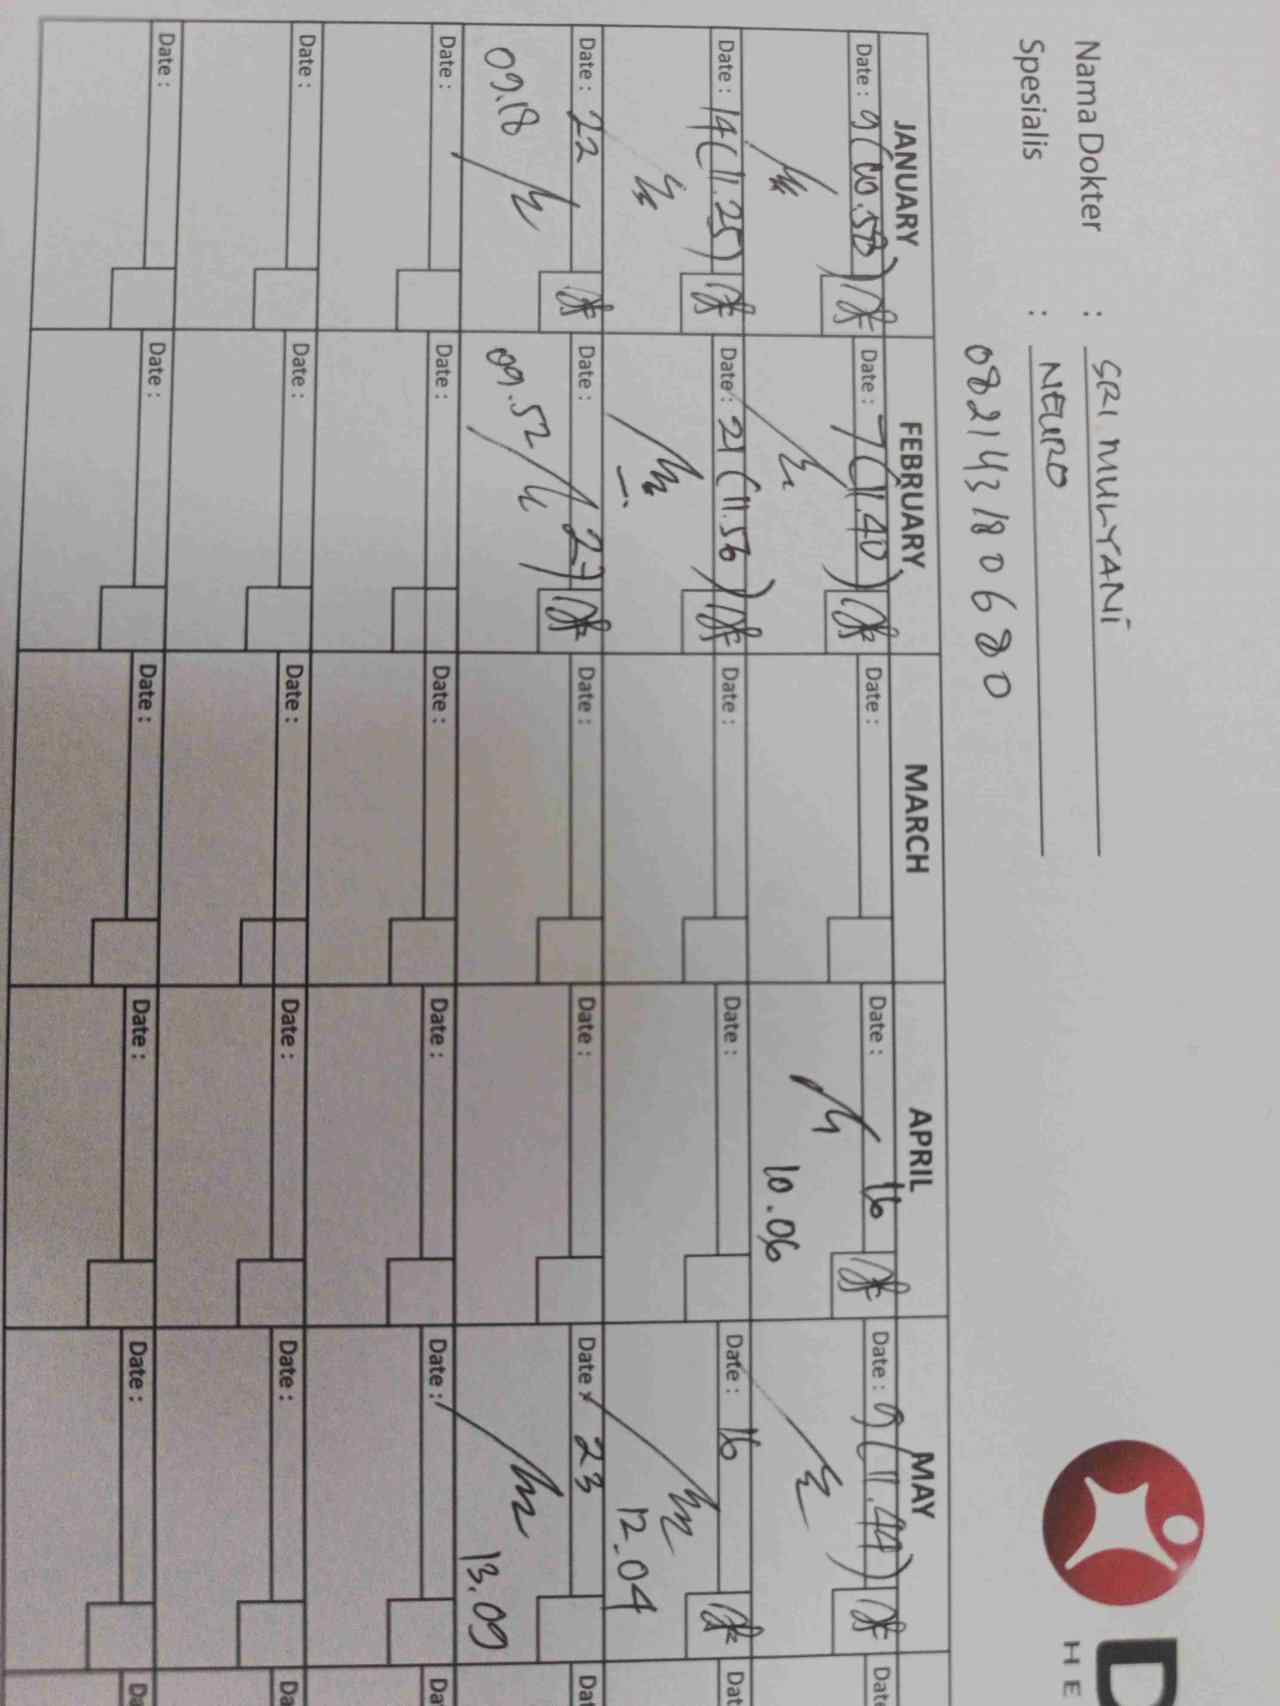 Nama Dokter : SRI MULYANI
Spesialis : NEURO
082143180680
D
HE
JANUARY FEBRUARY MARCH APRIL MAY
Date : 9 (10.58) Date : 7 (11.40) Date : Date : 16 Date : 9 (11.44) Date
10.06
Date : 14 (11.25) Date : 21 (11.56) Date : Date : Date : 16 Dat
12.04
Date : 22 Date : 27 Date : Date : Date : 23 Dat
09.18 09.52 13.09
Date : Date : Date : Date : Date : Da
Date : Date : Date : Date : Date : Da
Date : Date : Date : Date : Date : Da